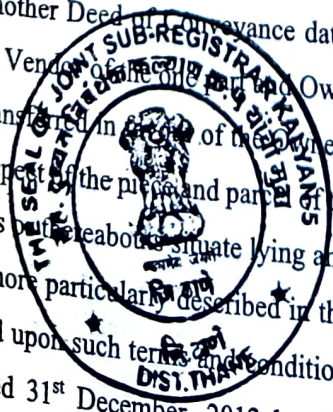 nother Deed of Conveyance dat
Vendor of the one part and Ow
ansferred in favour of the Owne
pect of the piece and parcel of
s or thereabouts situate lying a
more particularly described in th
d upon such terms and conditio
ed 31st December, 2012
THE SEAL OF JOINT SUB-REGISTRAR KALYAN-5
सह. दुय्यम निबंधक कल्याण क्र. ५ यांची मुद्रा
सत्यमेव जयते
जि ठाणे
जि. ठाणे
DIST. THANE